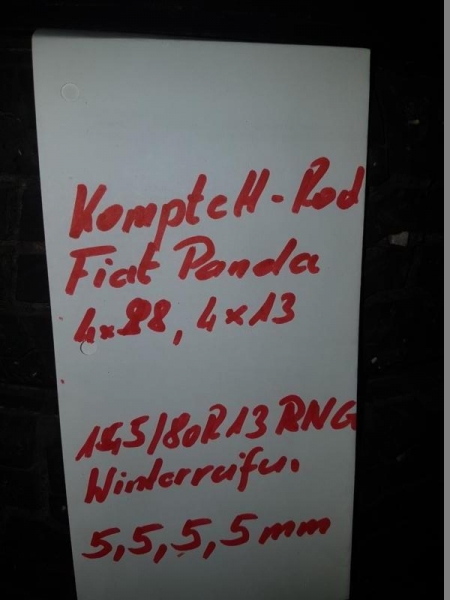 Komplett-Rad
Fiat Panda
4x98, 4x13
155/80R13 RNG
Winterreifen.
5,5,5,5mm